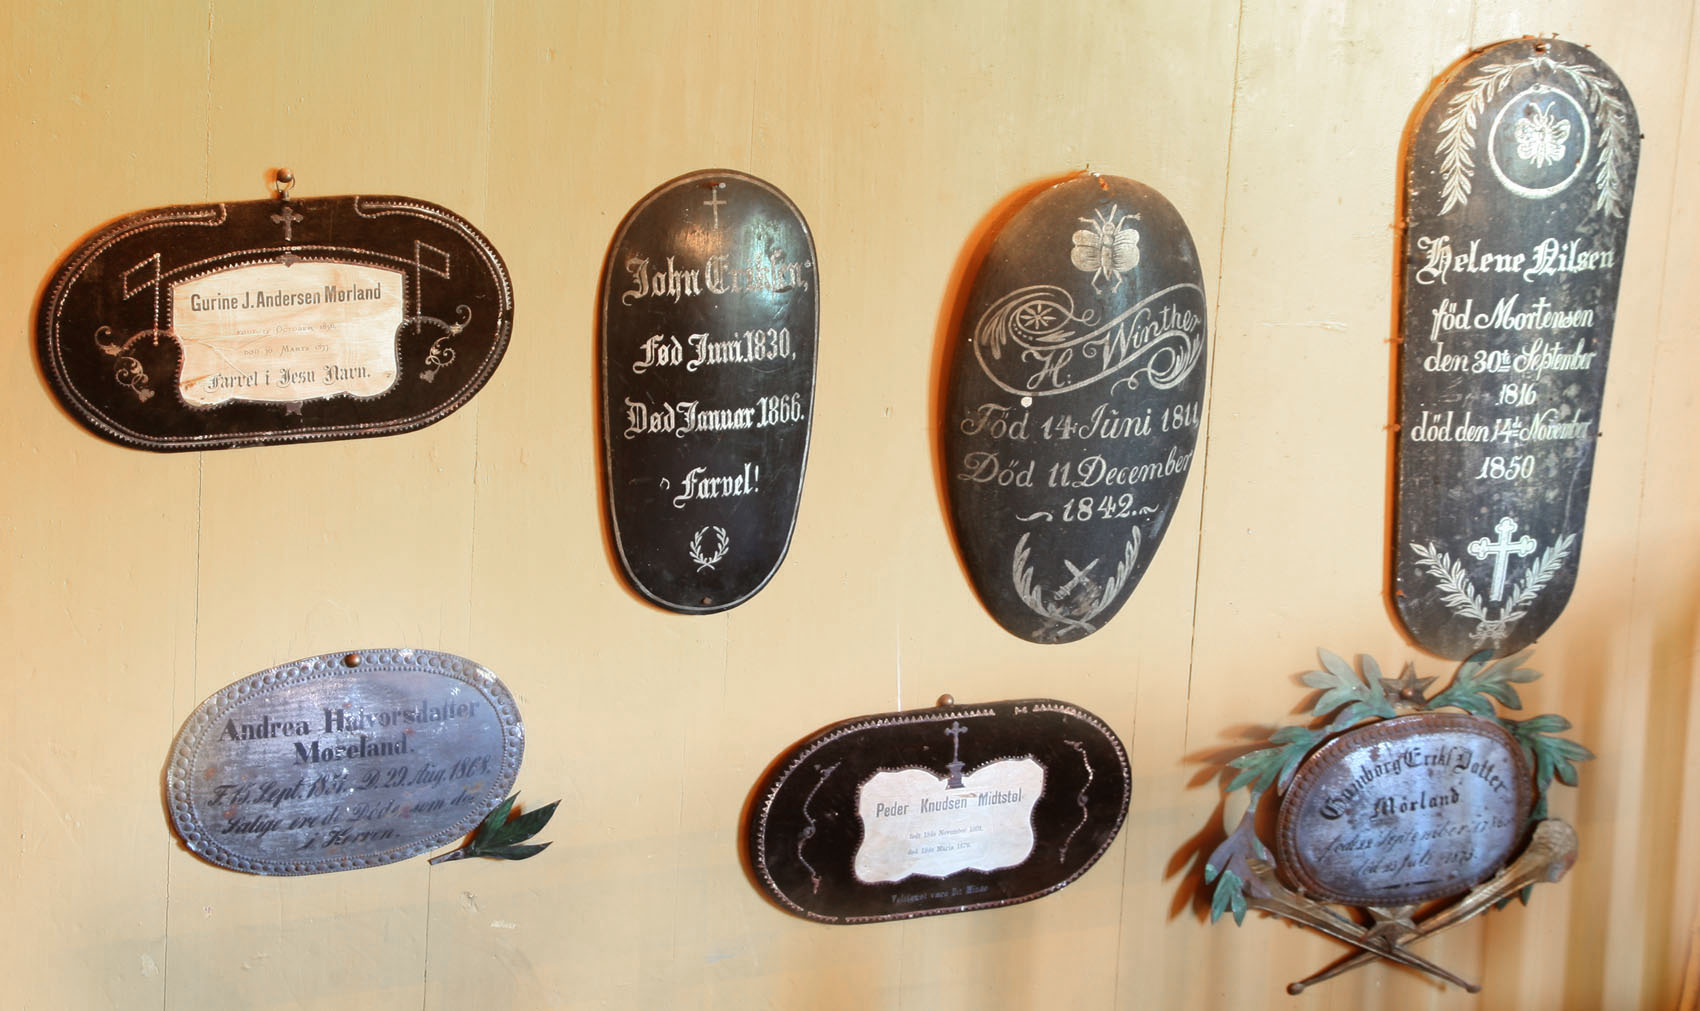 Gurine J. Andersen Mørland
October 1856
død 30 Marts 1877
Farvel i Jesu Navn.
John Eriksen,
Fød Juni 1830,
Død Januar 1866.
Farvel!
H. Winther
Föd 14 Jüni 1811
Död 11 December
1842.
Helene Nilsen
föd Mortensen
den 30te September
1816
död den 14de November
1850
Andrea Halvorsdatter
Moreland.
F. 15. Sept. 1851. D. 29. Aug. 1868.
Salige ere de Døde som dø
i Herren.
Peder Knudsen Midtstøl
født 18de November
død 18de Marts 1876.
Velsignet være Dit Minde
Gunborg Eriks Datter
Mörland
född 22 September
död 23 Juli 1875.